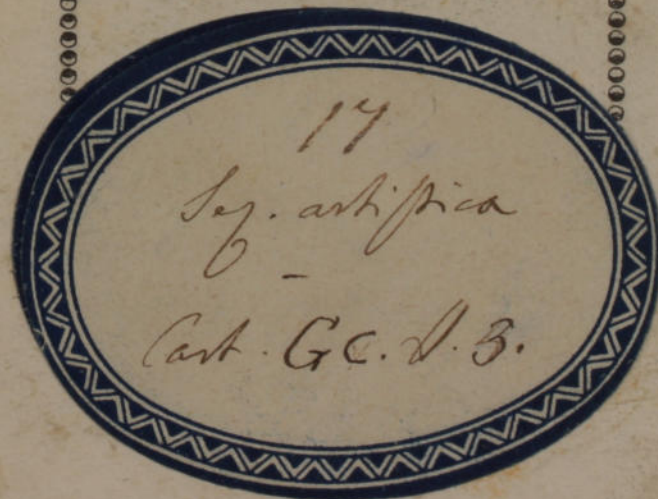 17
Sez. artistica
–
Cart. Gc. V. 3.